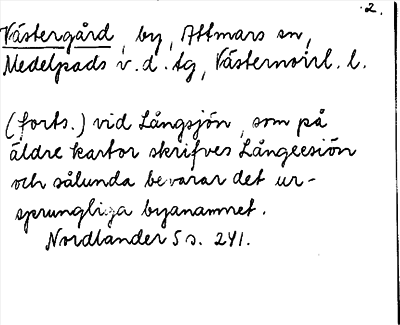 2.
Västergård, by, Attmars sn,
Medelpads v.d. tg, Västernorrl. l.
(forts.) vid Långsjön, som på
äldre kartor skrifves Långeesiön
och sålunda bevarar det ur-
sprungliga byanamnet.
Nordlander 5 s. 241.